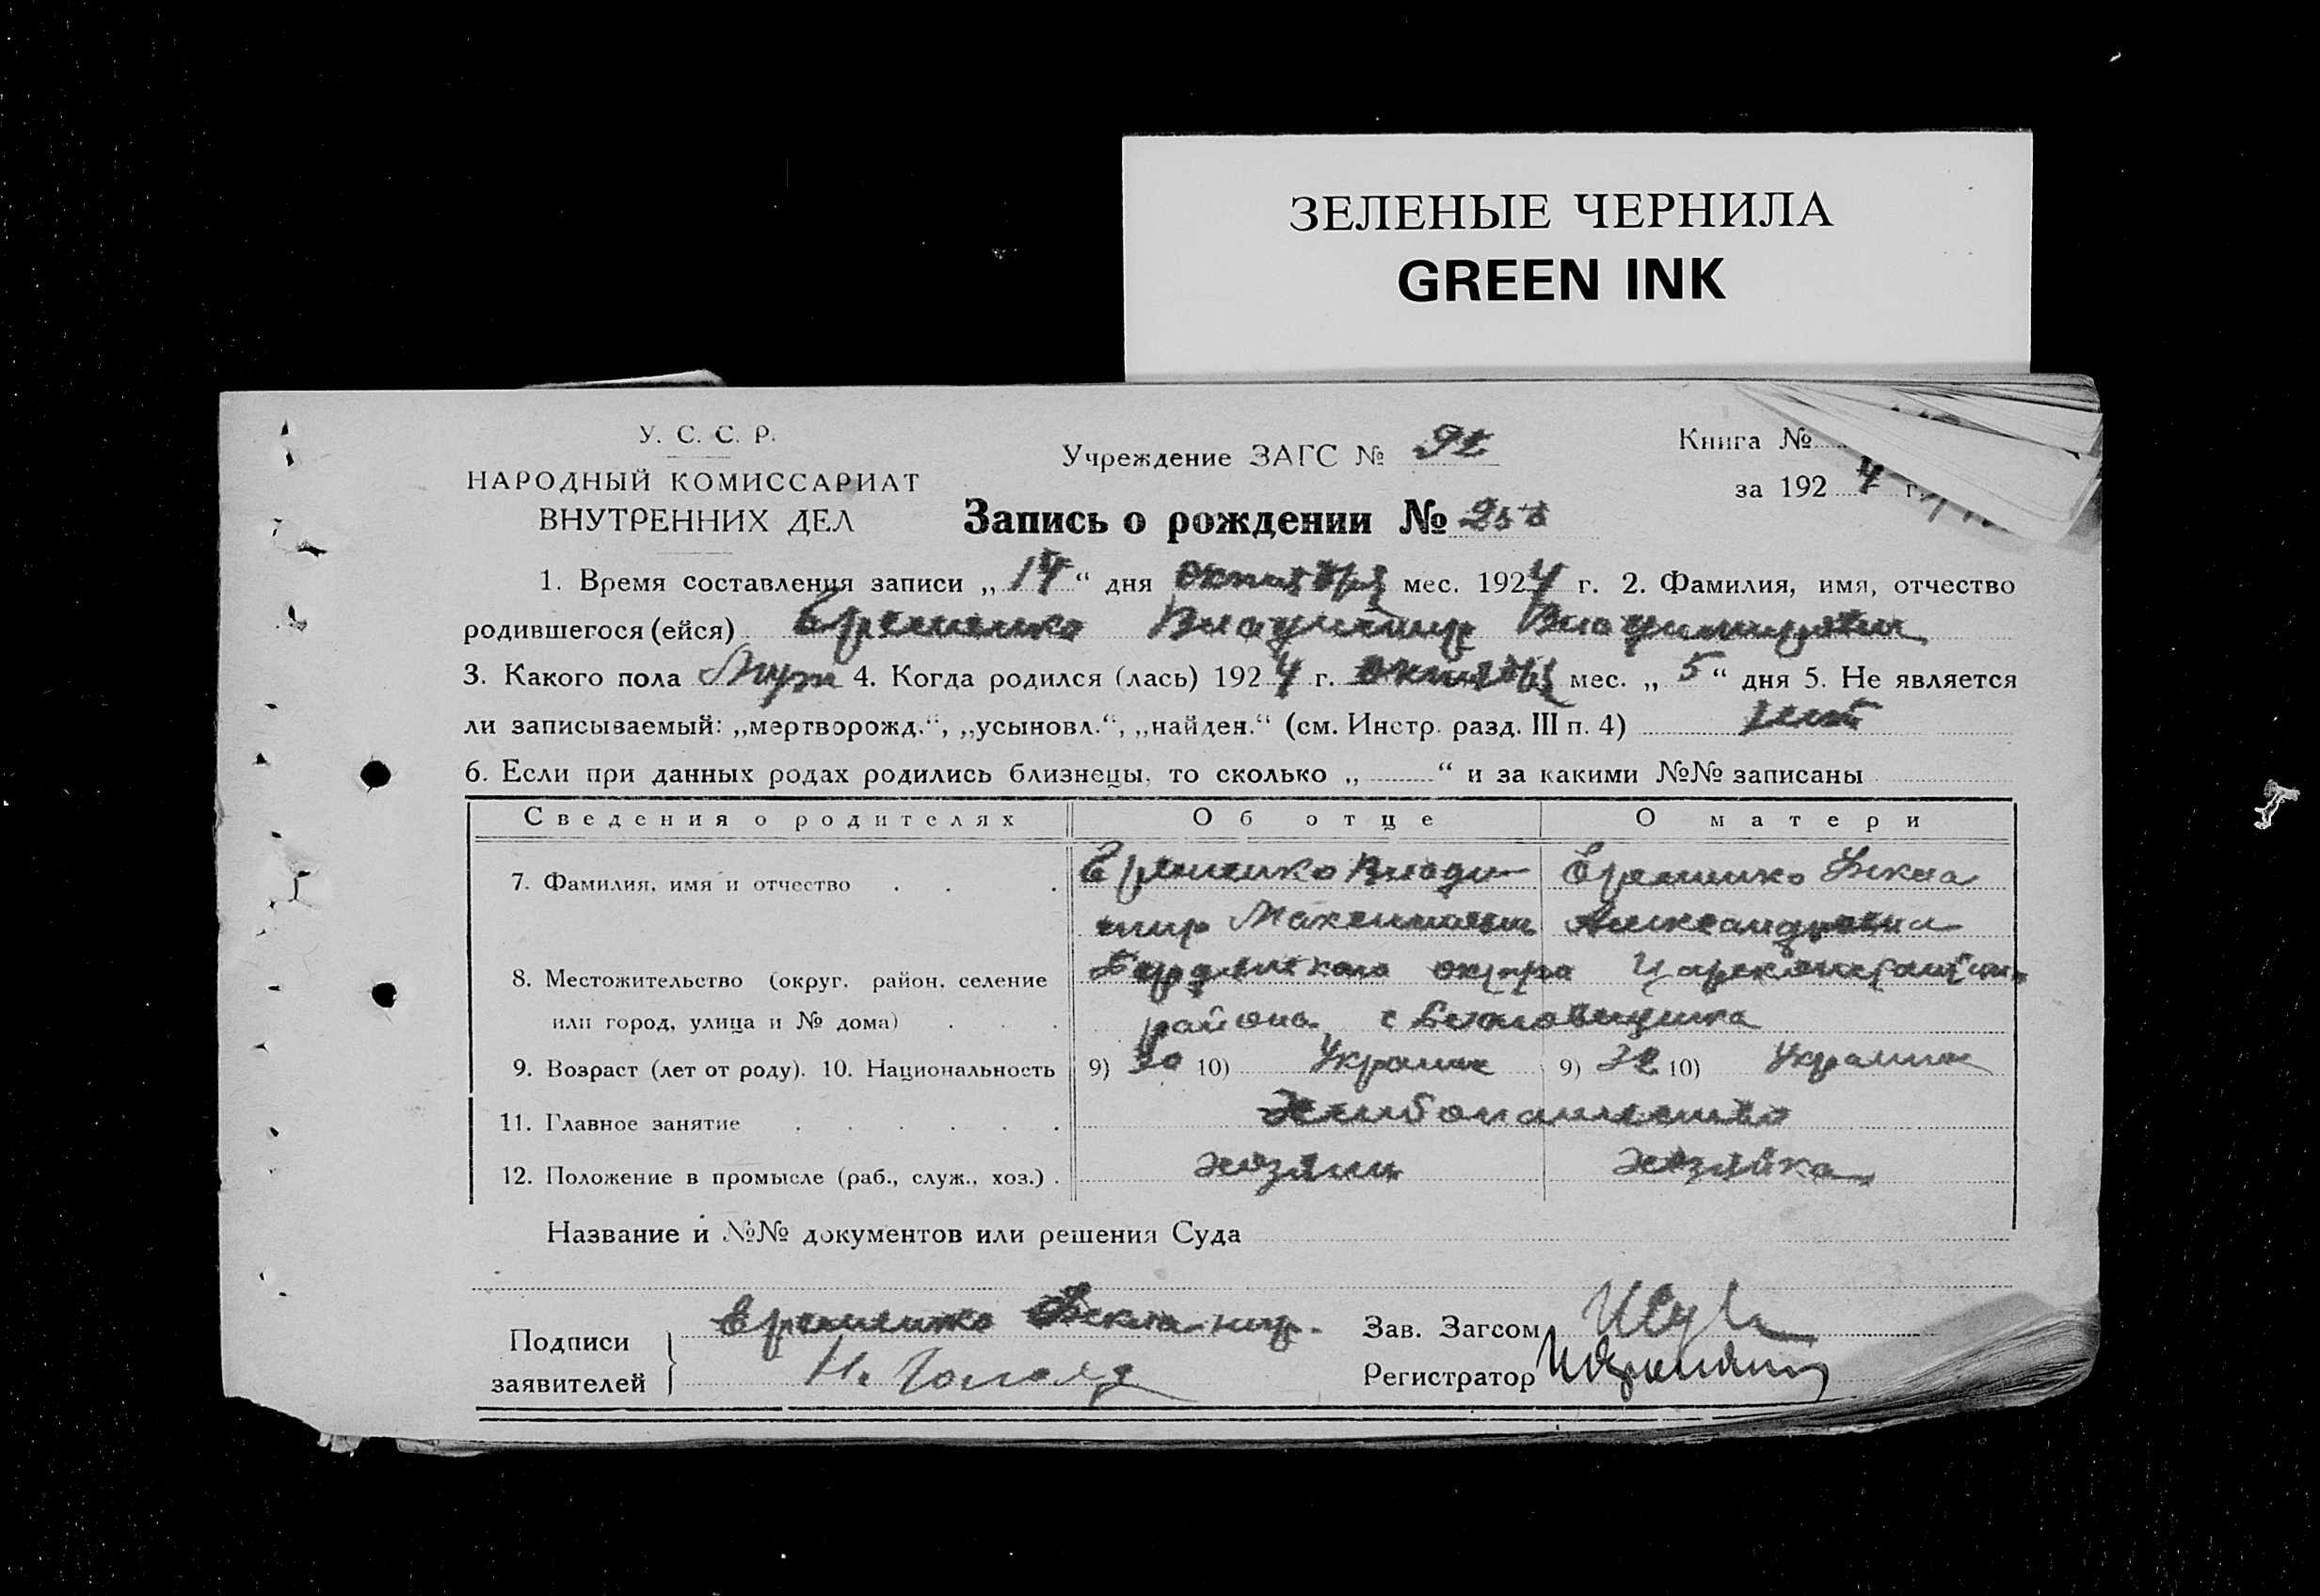 ЗЕЛЕНЫЕ ЧЕРНИЛА
GREEN INK
У. С. С. Р.
НАРОДНЫЙ КОМИССАРИАТ
ВНУТРЕННИХ ДЕЛ
Учреждение ЗАГС №
Книга №
за 1924 г.
Запись о рождении №
1. Время составления записи „14“ дня октября мес. 1924 г. 2. Фамилия, имя, отчество
родившегося (ейся) Еременко Владимир Владимирович
3. Какого пола Муж 4. Когда родился (лась) 1924 г. октября мес. „5“ дня 5. Не является
ли записываемый: „мертворожд.“, „усыновл.“, „найден.“ (см. Инстр. разд. III п. 4) нет
6. Если при данных родах родились близнецы, то сколько „ “ и за какими №№ записаны
Сведения о родителях Об отце О матери
7. Фамилия, имя и отчество Еременко Влади Еременко Фекла
мир Максимович Александровна
8. Местожительство (округ, район, селение Бердянского округа
или город, улица и № дома) района с
9. Возраст (лет от роду). 10. Национальность 9) 30 10) Украин 9) 10) Украин
11. Главное занятие Хлибопашество
12. Положение в промысле (раб., служ., хоз.) хозяин хозяйка
Название и №№ документов или решения Суда
Подписи заявителей Еременко Фекла
Н.
Зав. Загсом
Регистратор